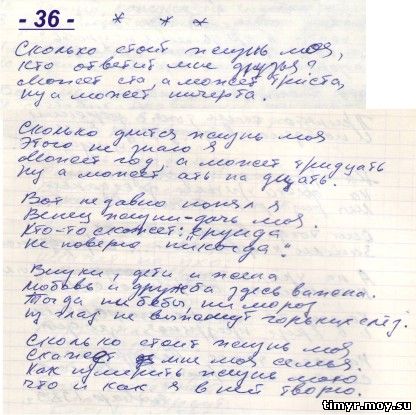 - 36 -
* * *
Сколько стоит жизнь моя,
Кто ответит мне друзья?
Может ста, а может триста,
ну а может ничерта.
Сколько длится жизнь моя
Этого не знаю я
Может год, а может тридцать
ну а может
Вот недавно понял я
Венец жизни - дочь моя
Кто-то скажет: ерунда
не поверю "никогда".
Внуки, дети и жена
Любовь и дружба здесь важена.
Тогда ни беды, ни мороз
из глаз не выпадут горьких слёз.
Сколько стоит жизнь моя
Скажет мне моя семья.
Как измерить жизнь мою
что и как я в ней творю.
timyr.moy.su